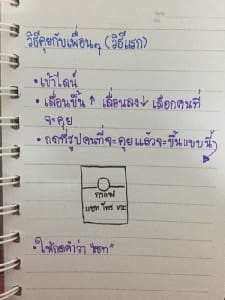 วิธีคุยกับเพื่อนๆ (วิธีแรก)
• เข้าไลน์
• เลื่อนขึ้น ↑ เลื่อนลง ↓ เลือกคนที่
จะคุย
• กดที่รูปคนที่จะคุยแล้วจะขึ้นแบบนี้
แชท โทร
• ให้กดคำว่า "แชท"